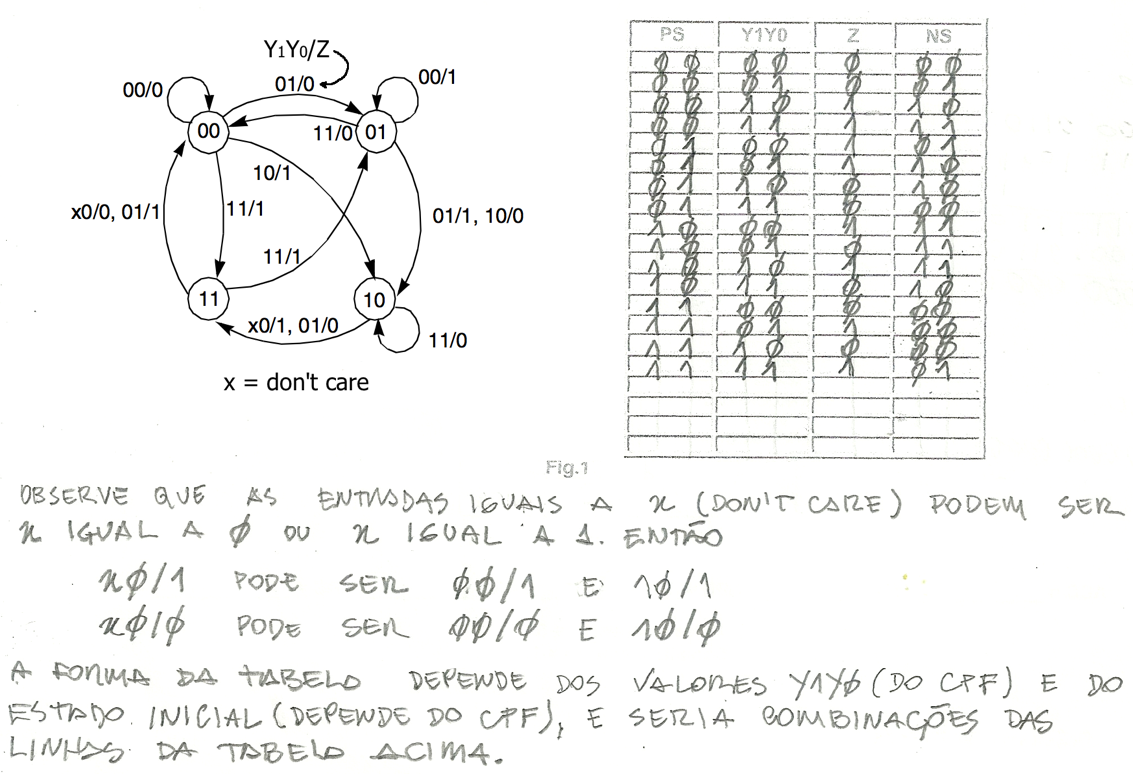 Y1Y0/Z
00/0
01/0
00/1
00
01
11/0
10/1
x0/0, 01/1
11/1
01/1, 10/0
11/1
11
10
x0/1, 01/0
11/0
x = don't care
PS Y1Y0 Z NS
0 0 0 0 0 0 0
0 0 0 1 0 0 1
0 0 1 0 1 1 0
0 0 1 1 1 1 1
0 1 0 0 1 0 1
0 1 0 1 1 1 0
0 1 1 0 0 1 0
0 1 1 1 0 0 0
1 0 0 0 1 1 1
1 0 0 1 0 1 1
1 0 1 0 1 1 1
1 0 1 1 0 1 0
1 1 0 0 0 0 0
1 1 0 1 1 0 0
1 1 1 0 0 0 0
1 1 1 1 1 0 1
Fig.1
OBSERVE QUE AS ENTRADAS IGUAIS A x (DON'T CARE) PODEM SER
x IGUAL A 0 OU x IGUAL A 1. ENTÃO
x0/1 PODE SER 00/1 E 10/1
x0/0 PODE SER 00/0 E 10/0
A FORMA DA TABELA DEPENDE DOS VALORES Y1Y0 (DO CPF) E DO
ESTADO INICIAL (DEPENDE DO CPF), E SERIA COMBINAÇÕES DAS
LINHAS DA TABELA ACIMA.